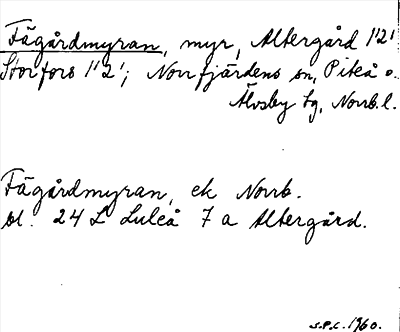 Fägårdmyran, myr, Altergård 1'2'
Storfors 1'2'; Norrfjärdens sn, Piteå o.
Älvsby tg, Norrb. l.
Fägårdmyran, ek Norrb.
bl. 24 L Luleå 7 a Altergård.
S.P.L. 1960.